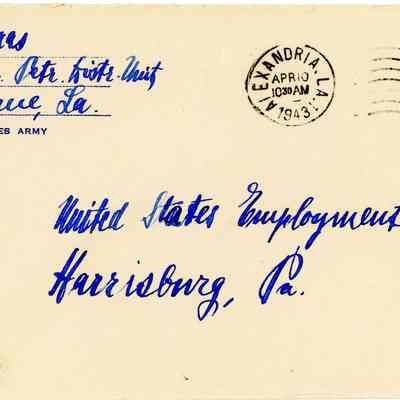 Petr. Distr. Unit
La.
ES ARMY
ALEXANDRIA, LA.
APR 10
10 30 AM
1943
United States Employment
Harrisburg, Pa.